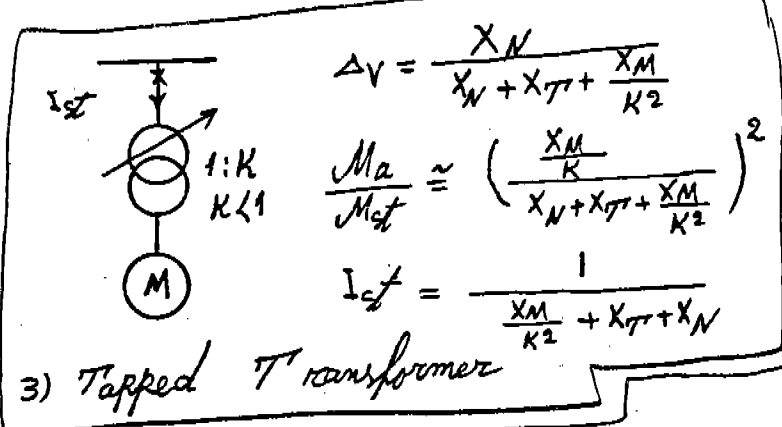 Ist
1:K
K<1
M
ΔV = XN / (XN + XT + XM/K²)
Ma/Mst ≅ ((XM/K) / (XN + XT + XM/K²))²
Ist = 1 / (XM/K² + XT + XN)
3) Tapped Transformer